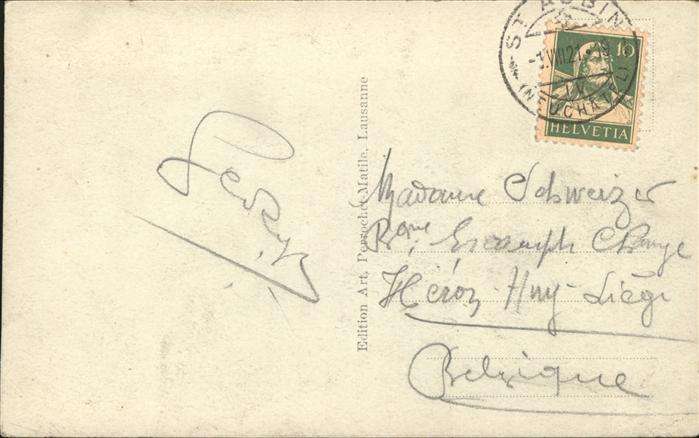 ST AUBIN
-3.VIII.21
(NEUCHATEL)
10
HELVETIA
Edition Art, Perrochet-Matile, Lausanne
Madame Schweizer
Bᵒⁿⁿᵉ
Héron-Huy-Liège
Belgique